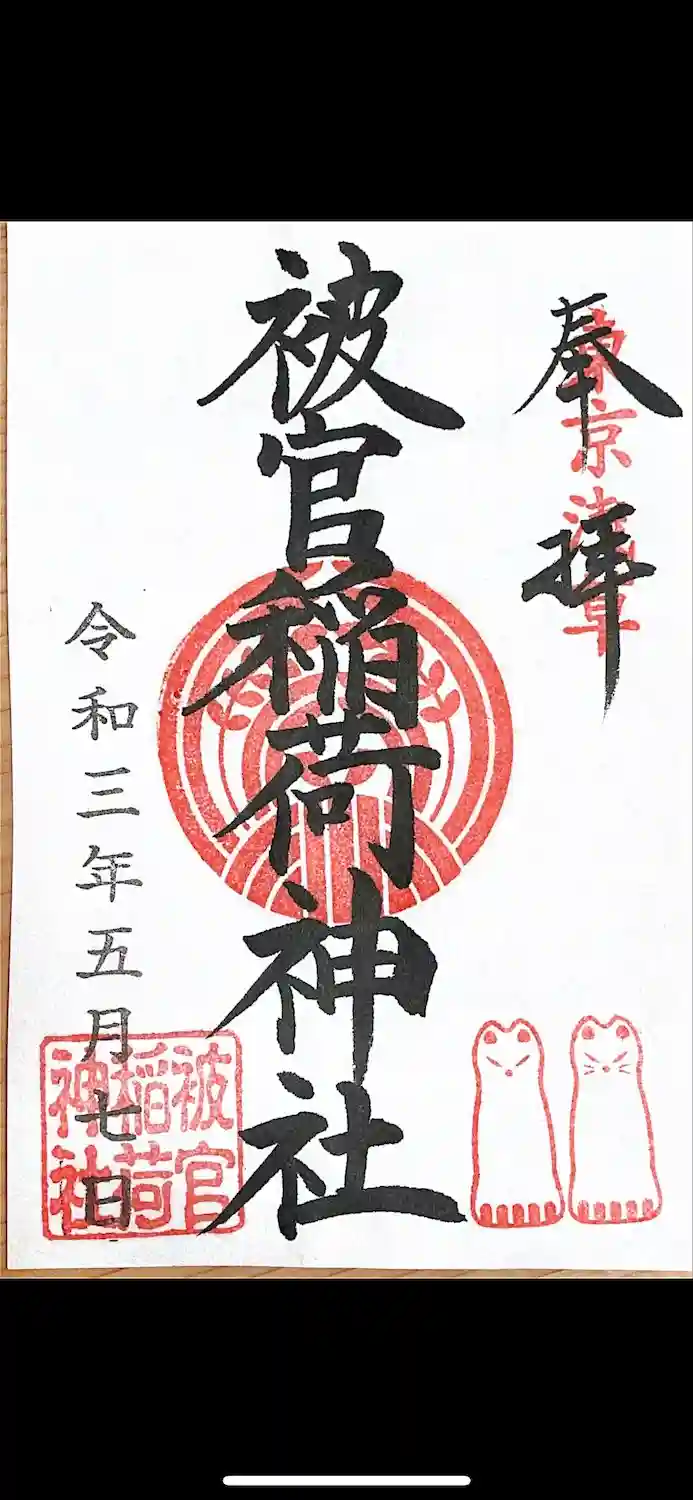 奉拝
東京浅草
被官稲荷神社
令和三年五月七日
被官
稲荷
神社